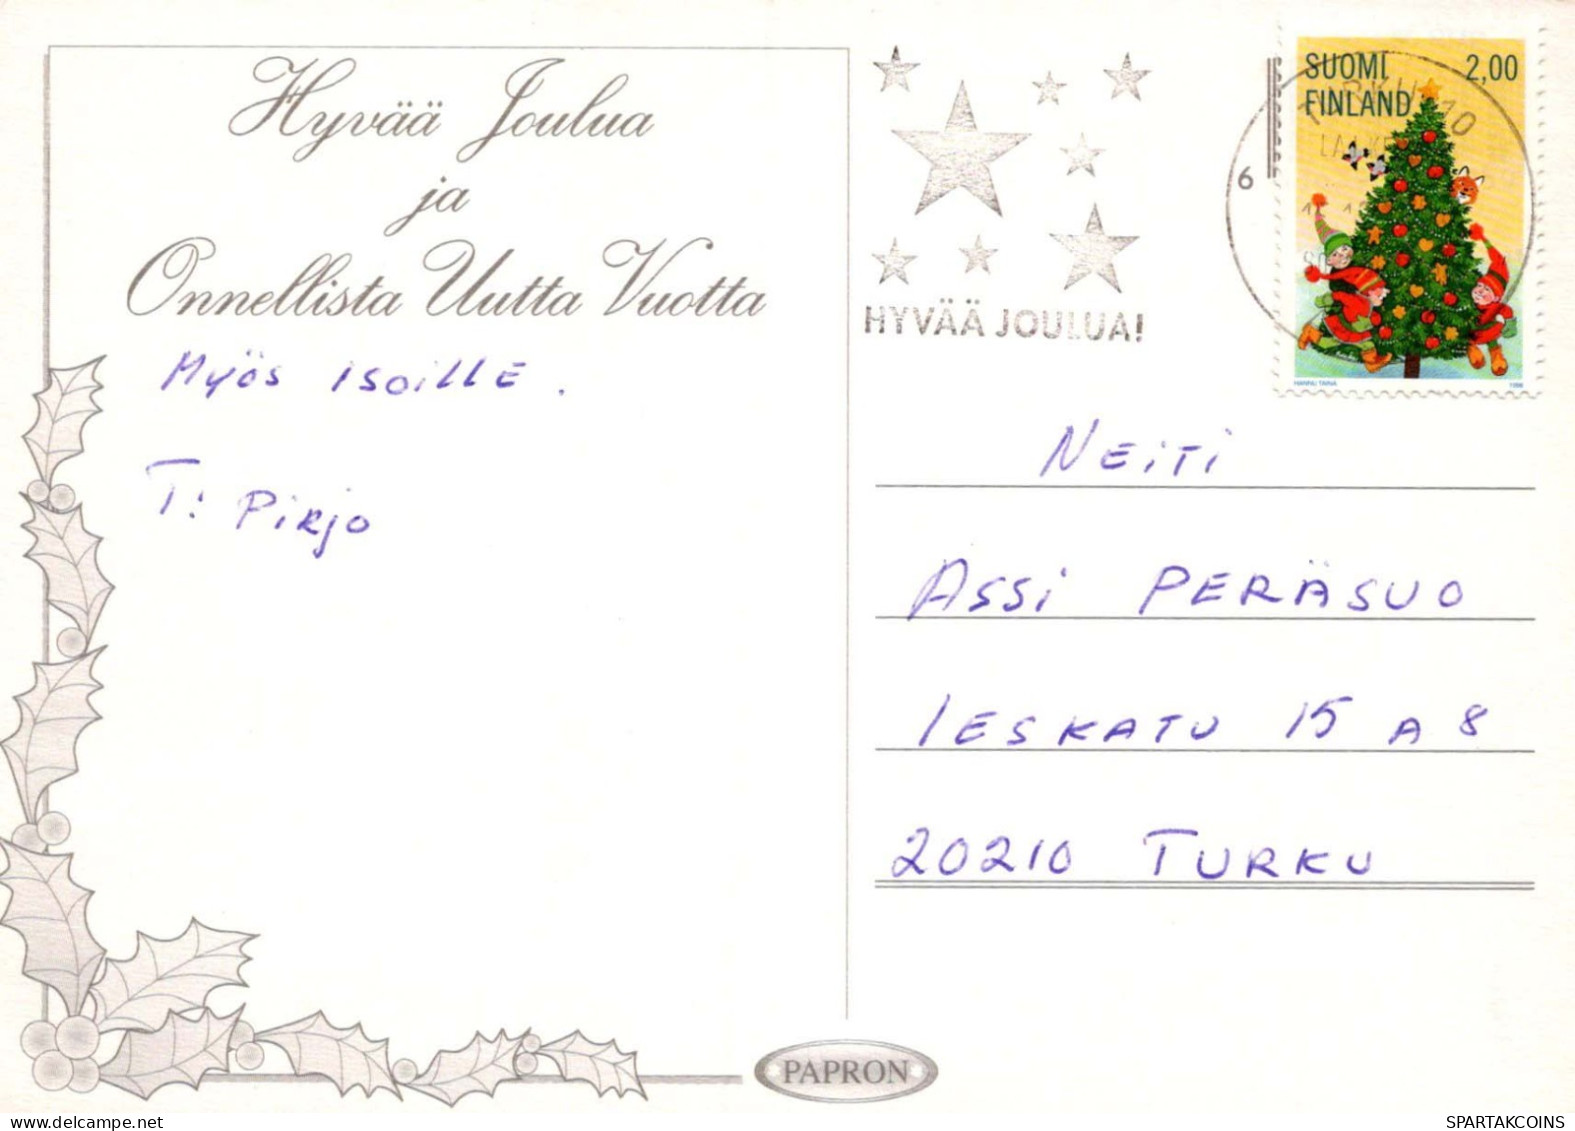 Hyvää Joulua
ja
Onnellista Uutta Vuotta
Myös isoille.
T: Pirjo
HYVÄÄ JOULUA!
6
SUOMI 2,00
FINLAND
HANNU TAINA 1998
NEiTi
ASSi PERÄSUO
IESKATU 15 A 8
20210 TURKU
PAPRON
SPARTAKCOINS